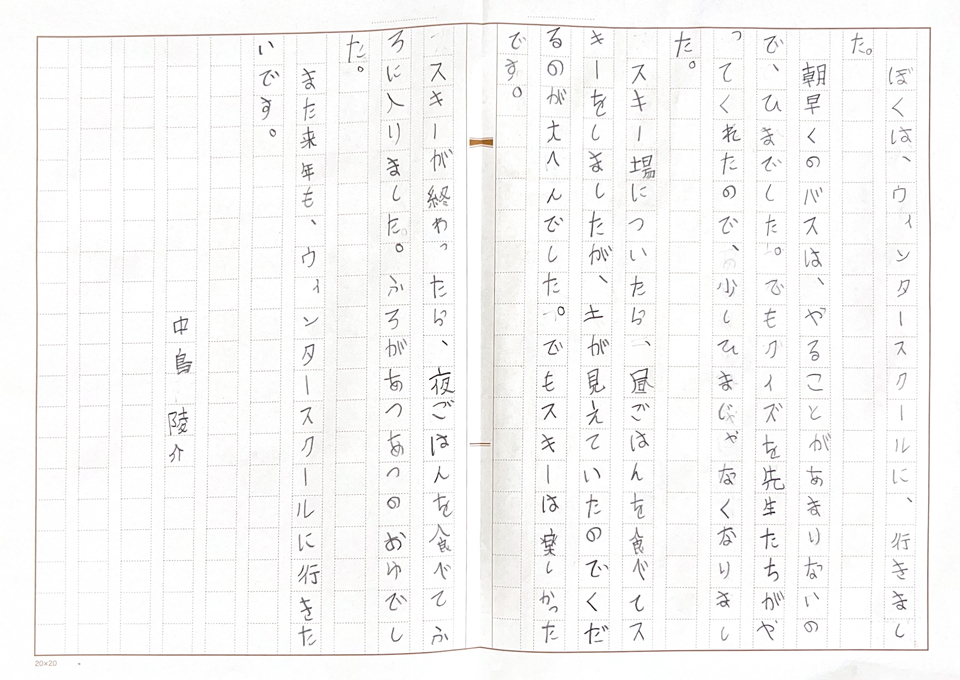 ぼくは、ウィンタースクールに、行きまし
た。
朝早くのバスは、やることがあまりないの
で、ひまでした。でもクイズを先生たちがや
ってくれたので、少しひまじゃなくなりまし
た。
スキー場についたら、昼ごはんを食べてス
キーをしましたが、土が見えていたのでくだ
るのが大へんでした。でもスキーは楽しかった
です。
スキーが終わったら、夜ごはんを食べてふ
ろに入りました。ふろがあつあつのおゆでし
た。
また来年も、ウィンタースクールに行きた
いです。
中島 陵介
20×20